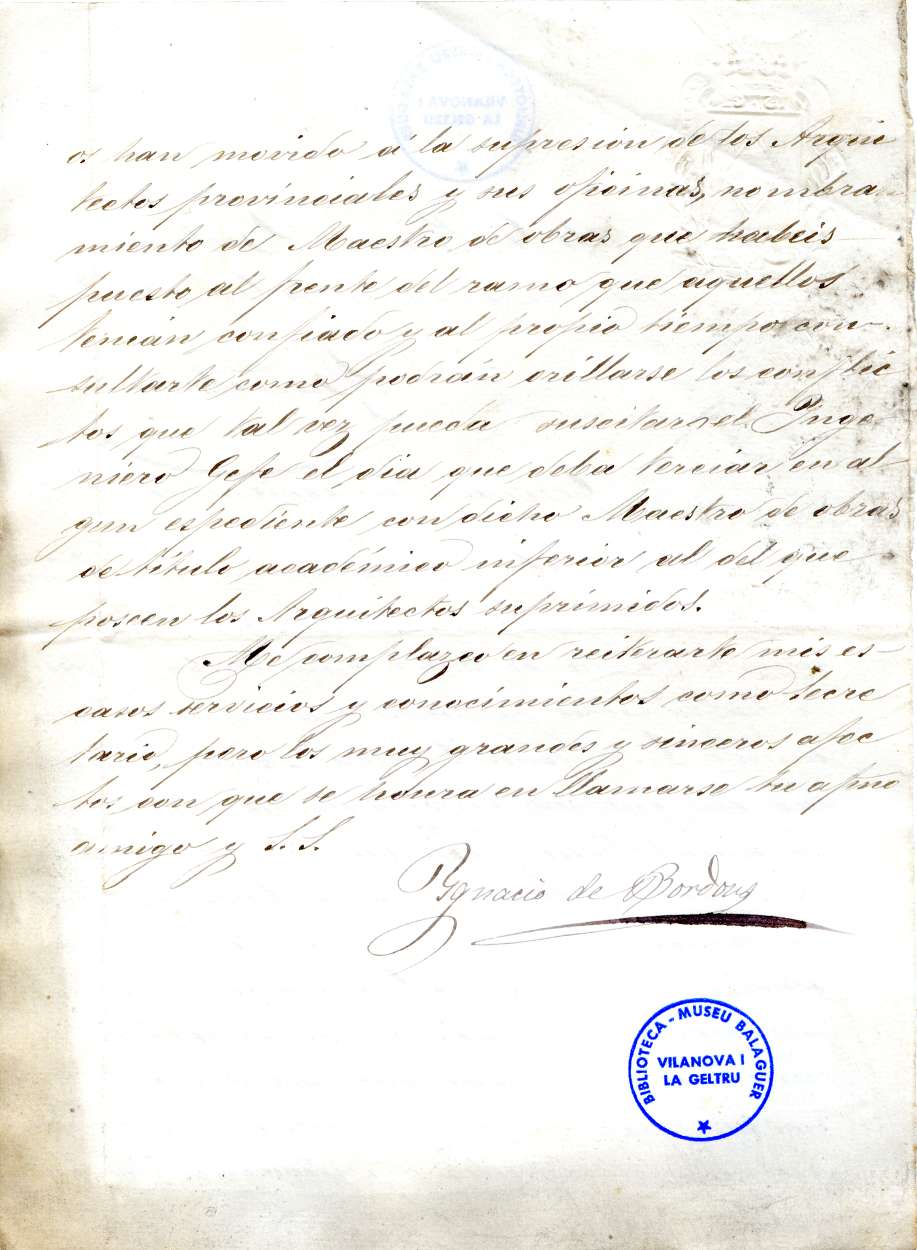 os han movido á la supresión de los Arqui
tectos provinciales y sus oficinas, nombra-
miento de Maestro de obras que habeis
puesto al frente del ramo que aquellos
tenian confiado y al propio tiempo con-
sultarte como podrán orillarse los conflic
tos que tal vez pueda suscitar el Inge
niero Gefe el dia que deba terciar en al-
gun espediente con dicho Maestro de obras
de titulo académico inferior al del que
poseen los Arquitectos suprimidos.
Me complazco en reiterarte mis es-
casos servicios y conocimientos como Secre
tario, pero los muy grandes y sinceros afec
tos con que se honra en llamarse tu afmo
amigo y S. S.
Ygnacio de
BIBLIOTECA - MUSEU BALAGUER
VILANOVA I
LA GELTRU